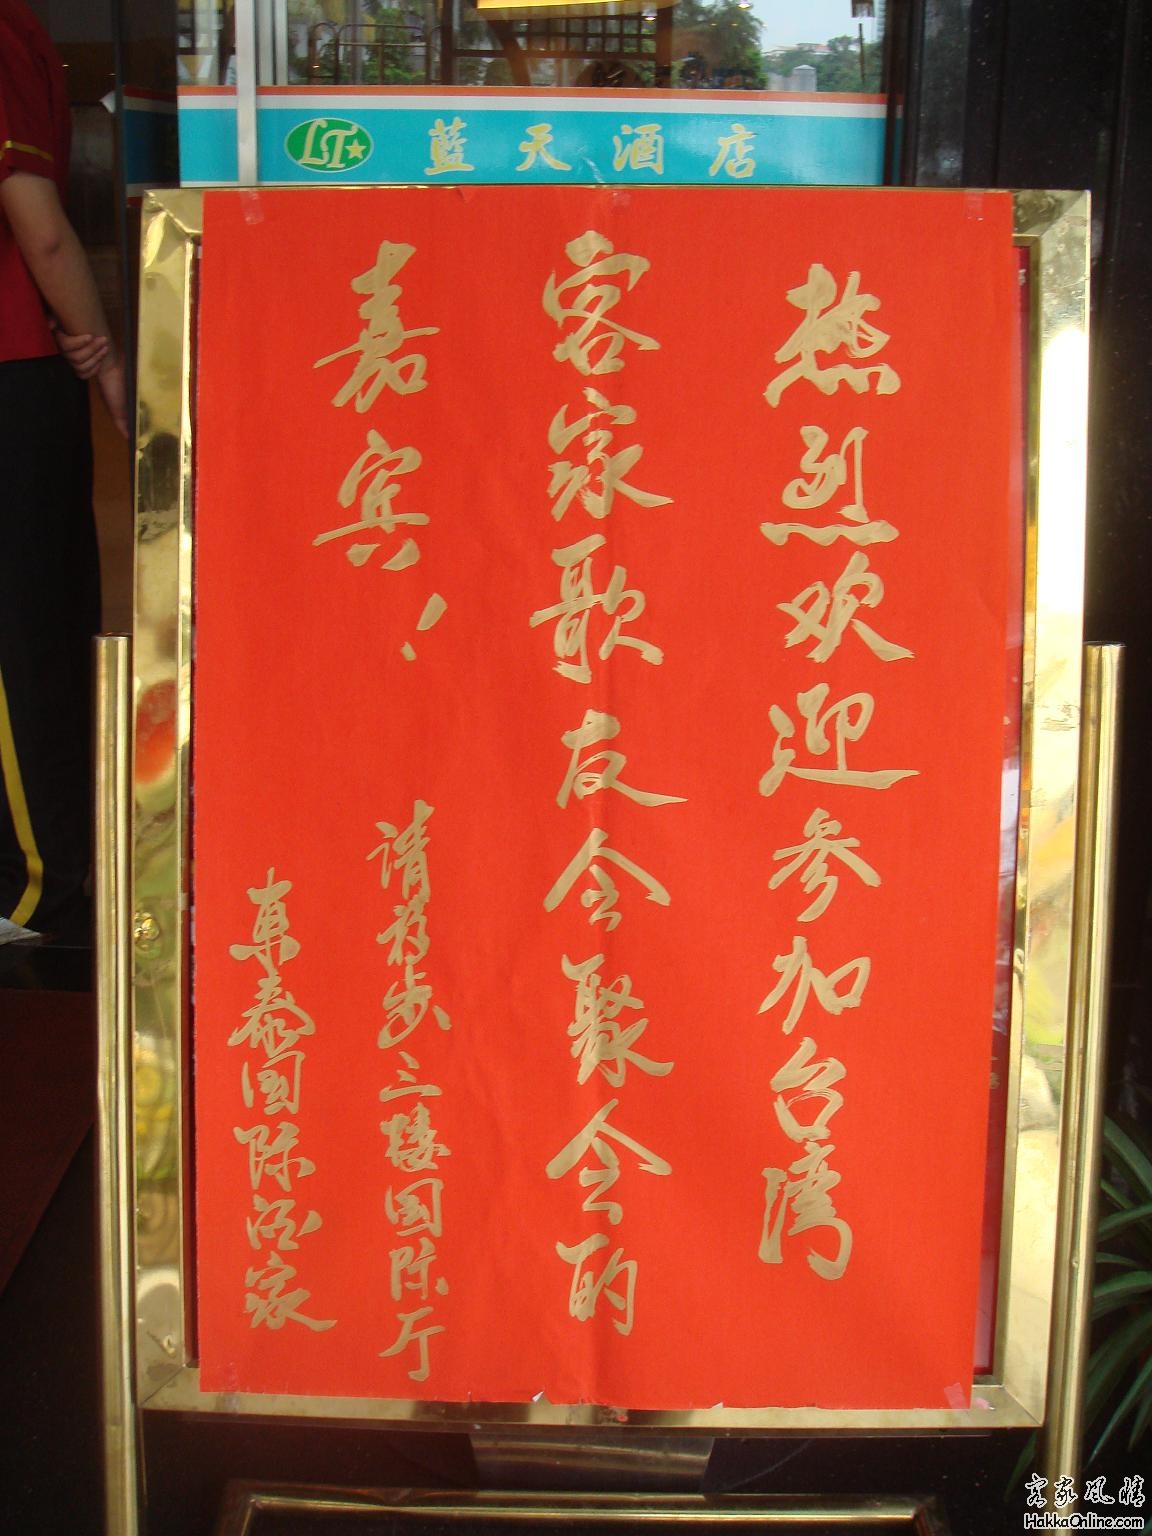 LT
藍天酒店
热烈欢迎参加台湾
客家歌友会聚会的
嘉宾！
请移步三楼国际厅
东泰国际酒家
客家风情
HakkaOnline.com